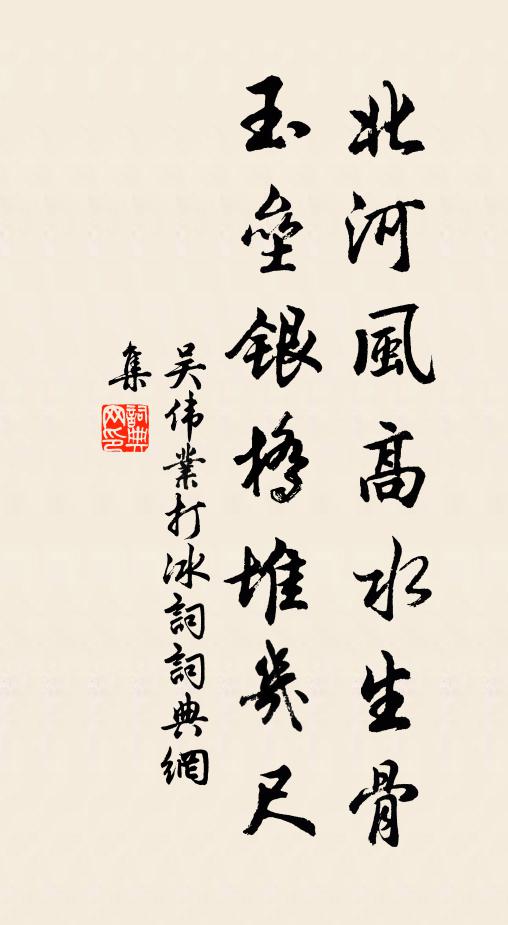 北河風高水生骨
玉壘銀橋堆幾尺
吴伟業打冰詞詞典網
集
詞典
网印